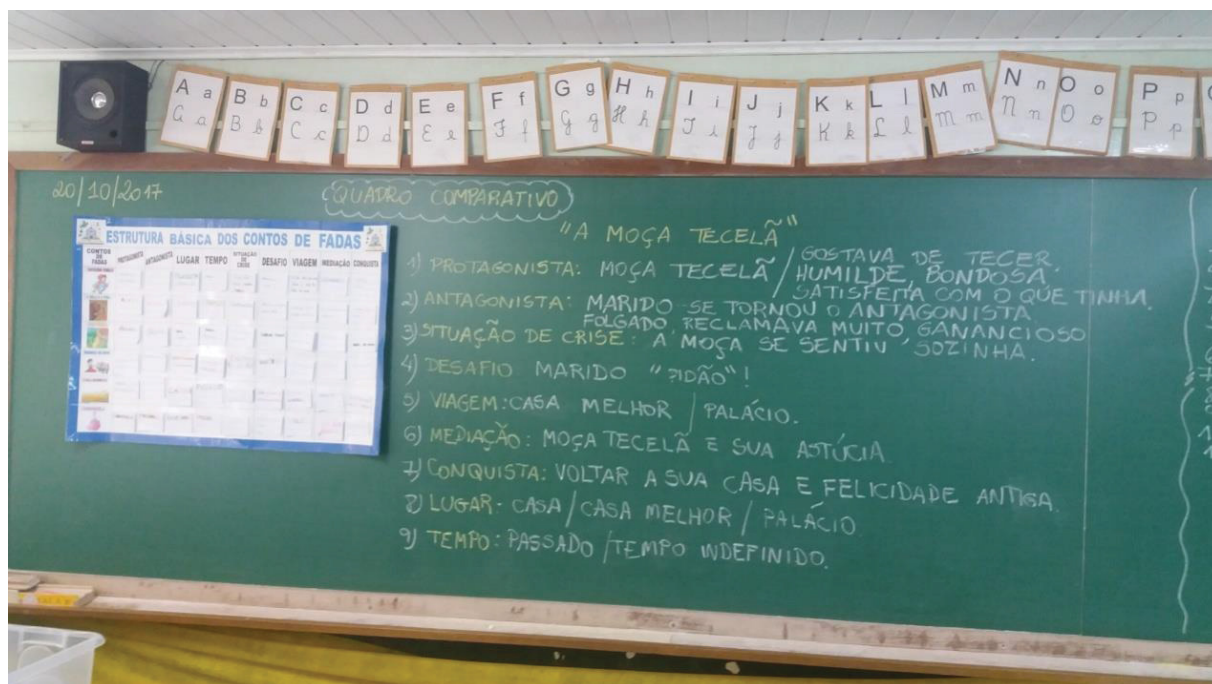 A a
A a
B b
B b
C c
C c
D d
D d
E e
E e
F f
F f
G g
G g
H h
H h
I i
I i
J j
J j
K k
K k
L l
L l
M m
M m
N n
N n
O o
O o
P p
P p
20/10/2017
QUADRO COMPARATIVO
"A MOÇA TECELÃ"
ESTRUTURA BÁSICA DOS CONTOS DE FADAS
CONTOS DE FADAS PROTAGONISTA ANTAGONISTA LUGAR TEMPO SITUAÇÃO DE CRISE DESAFIO VIAGEM MEDIAÇÃO CONQUISTA
1) PROTAGONISTA: MOÇA TECELÃ / GOSTAVA DE TECER.
HUMILDE, BONDOSA
SATISFEITA COM O QUE TINHA.
2) ANTAGONISTA: MARIDO SE TORNOU O ANTAGONISTA
FOLGADO, RECLAMAVA MUITO, GANANCIOSO
3) SITUAÇÃO DE CRISE: A MOÇA SE SENTIU SOZINHA.
4) DESAFIO: MARIDO "PIDÃO"!
5) VIAGEM: CASA MELHOR / PALÁCIO.
6) MEDIAÇÃO: MOÇA TECELÃ E SUA ASTÚCIA
7) CONQUISTA: VOLTAR A SUA CASA E FELICIDADE ANTIGA.
8) LUGAR - CASA / CASA MELHOR / PALÁCIO
9) TEMPO: PASSADO / TEMPO INDEFINIDO.